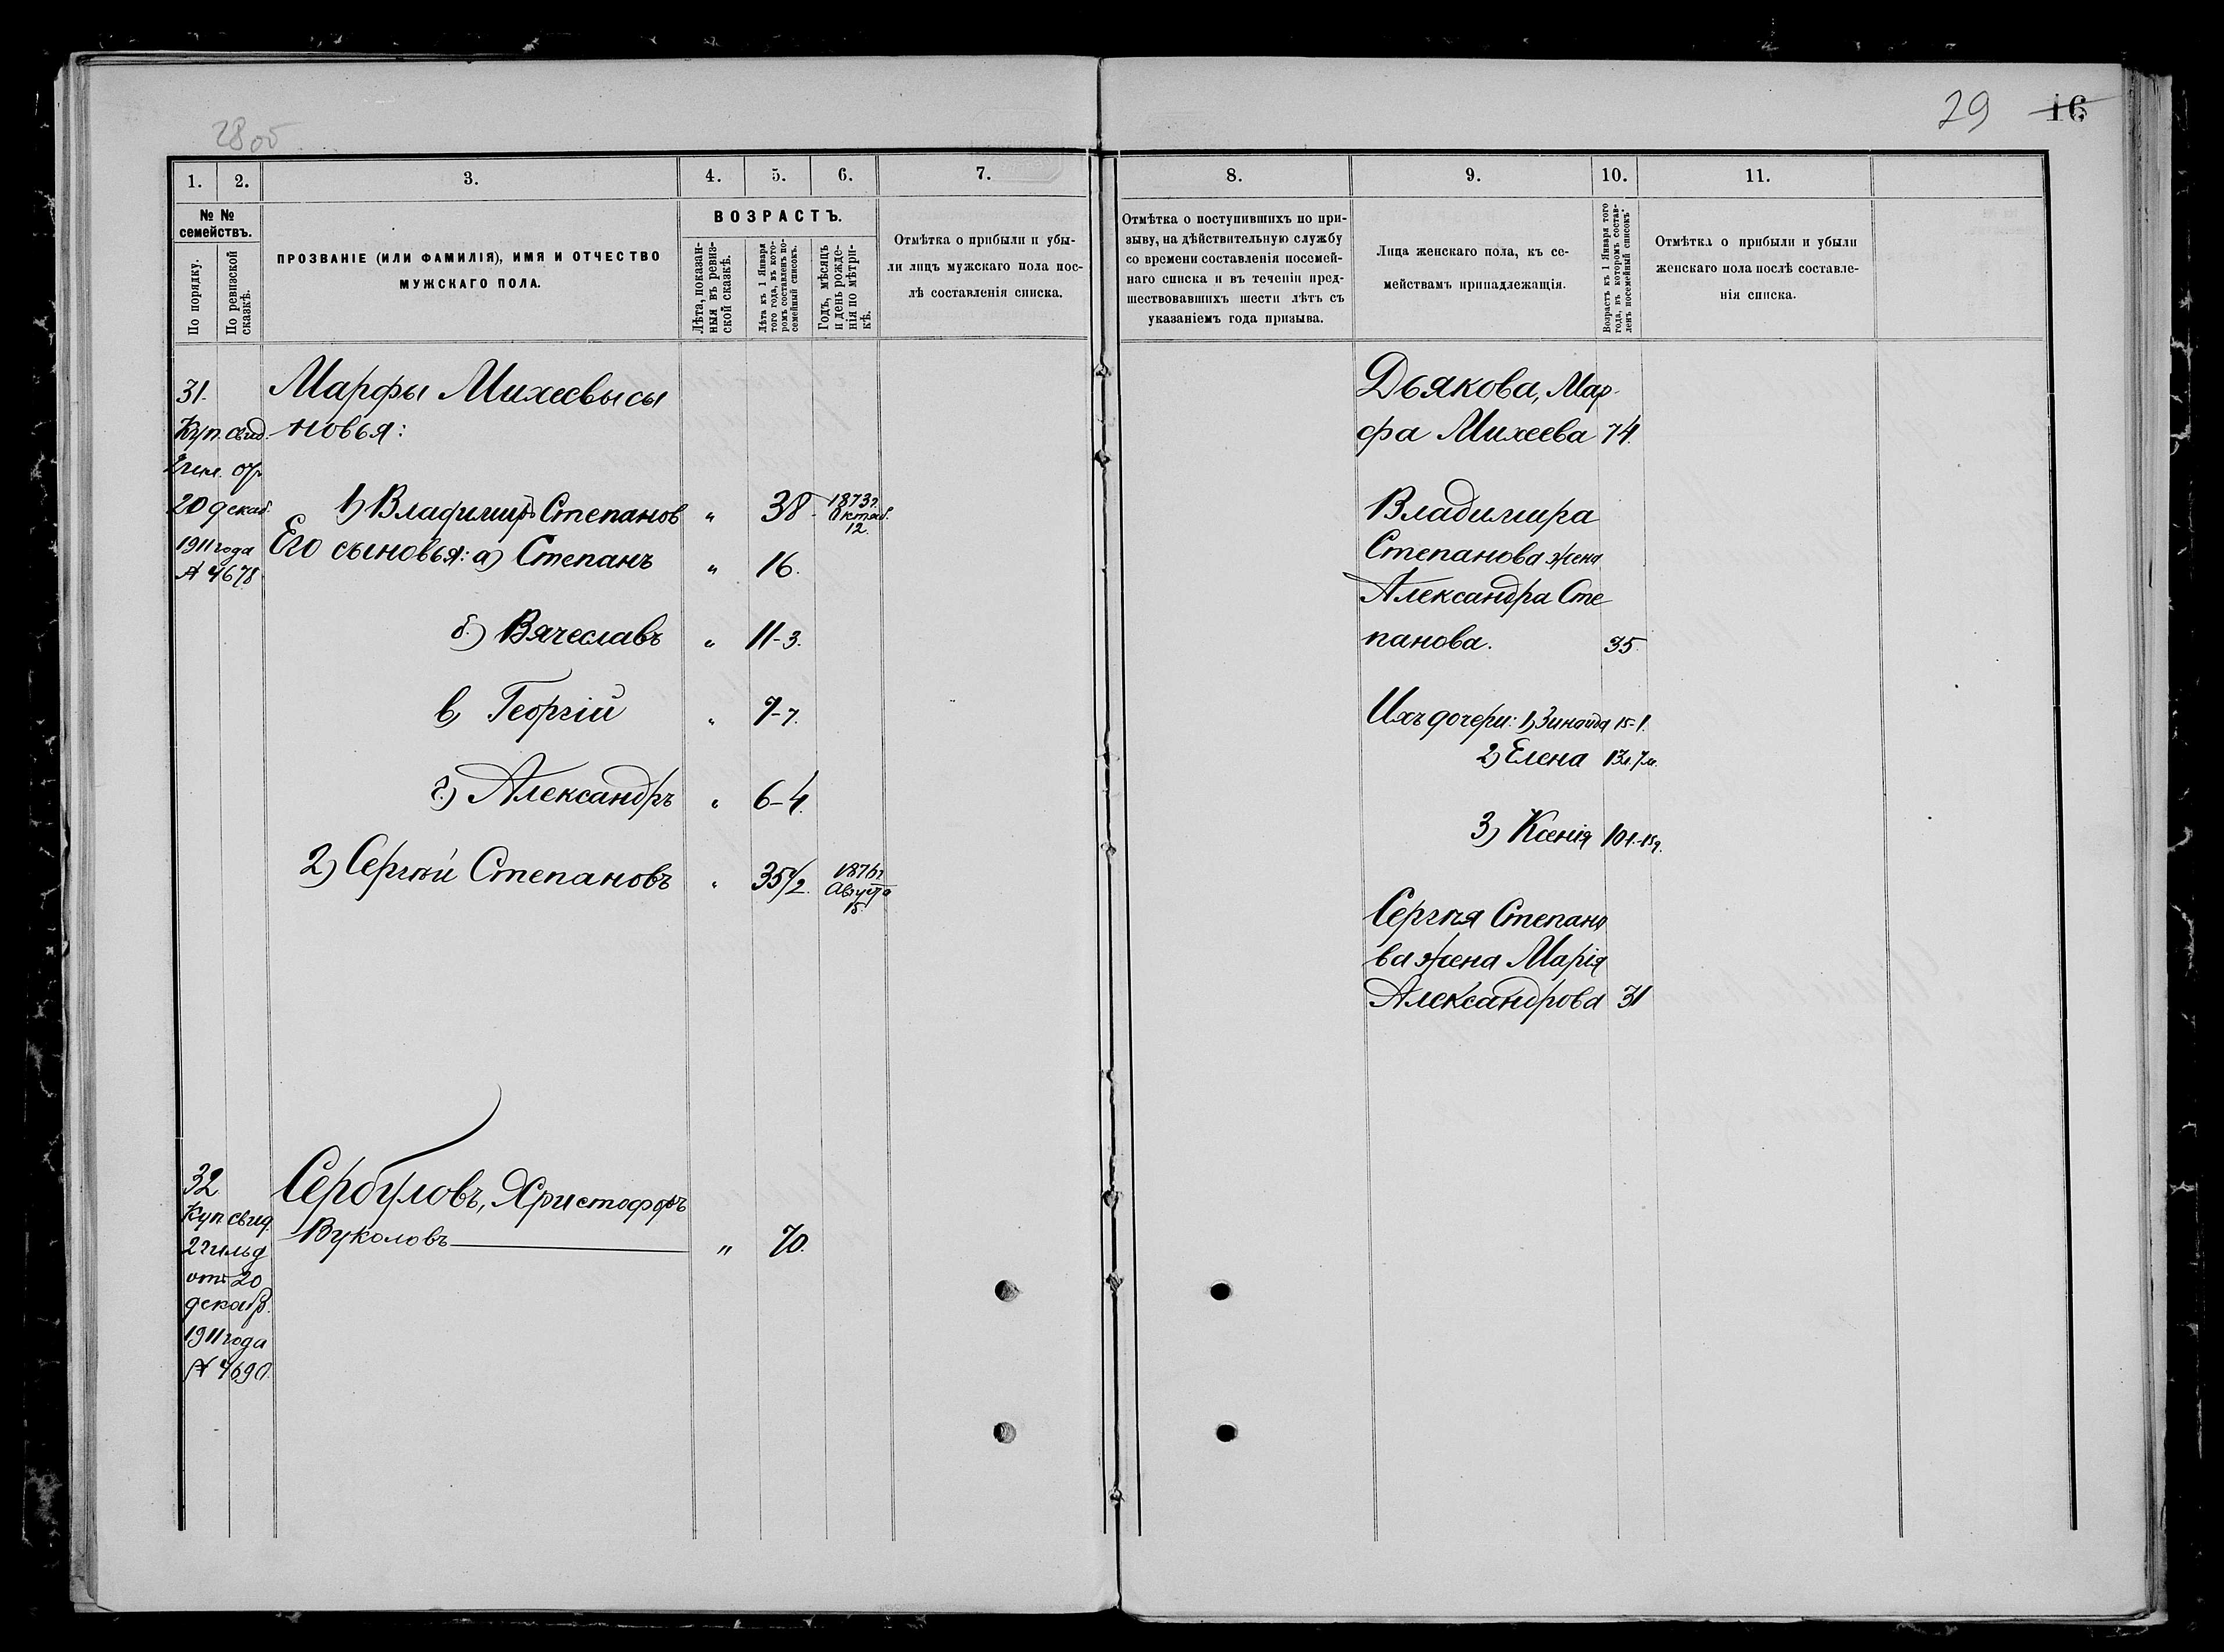 28об
29 16
1. 2. 3. 4. 5. 6. 7.
№ № семействъ.
По порядку.
По ревизской сказкѣ.
ПРОЗВАНІЕ (ИЛИ ФАМИЛІЯ), ИМЯ И ОТЧЕСТВО
МУЖСКАГО ПОЛА.
ВОЗРАСТЪ.
Лѣта, показан-
ныя въ ревиз-
ской сказкѣ.
Лѣта къ 1 Января
того года, въ кото-
ромъ составленъ по-
семейный списокъ.
Годъ, мѣсяцъ
и день рожде-
нія по мѣтри-
кѣ.
Отмѣтка о прибыли и убы-
ли лицъ мужскаго пола пос-
лѣ составленія списка.
31.
Куп. свид.
2 гил. от
20 декаб.
1911 года
№ 4678
Марфы Михеевы сы
новья:
1) Владимиръ Степанов " 38 1873 г. Октяб. 12.
Его сыновья: а) Степанъ " 16.
б) Вячеславъ " 11-3.
в) Георгій " 9-7.
г) Александръ " 6-4.
2) Сергѣй Степановъ " 35 1/2. 1876 г. Августа 15.
32
Куп. свид.
2 гильд
отъ 20
декабр.
1911 года
№ 4690.
Сербуловъ, Христофоръ
Вуколовъ " 70.
8. 9. 10. 11.
Отмѣтка о поступившихъ по при-
зыву, на дѣйствительную службу
со времени составленія посемей-
наго списка и въ теченіи пред-
шествовавшихъ шести лѣтъ съ
указаніемъ года призыва.
Лица женскаго пола, къ се-
мействамъ принадлежащія.
Возрастъ къ 1 Января того
года, въ которомъ состав-
ленъ посемейный списокъ.
Отмѣтка о прибыли и убыли
женскаго пола послѣ составле-
нія списка.
Дьякова, Мар-
фа Михеева 74.
Владимира
Степанова жена
Александра Сте
панова. 35.
Ихъ дочери: 1) Зинаида 15-1.
2) Елена 13 л. 7 м.
3) Ксенія
Сергѣя Степано
ва жена Марія
Александрова 31